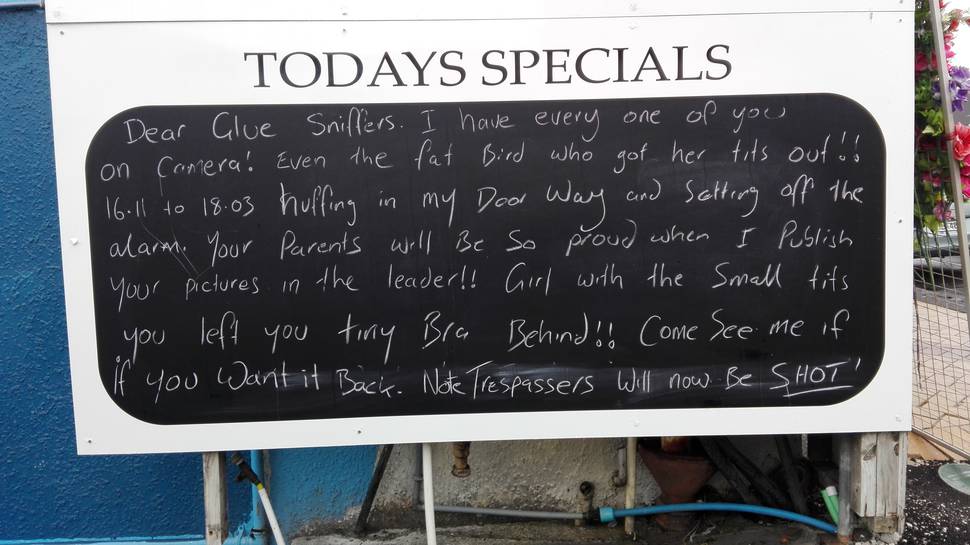 TODAYS SPECIALS
Dear Glue Sniffers. I have every one of you
on Camera! Even the fat Bird who got her tits out!!
16.11 to 18.03 huffing in my Door Way and Setting off the
alarm. Your Parents will Be So proud when I Publish
your pictures in the leader!! Girl with the Small tits
you left you tiny Bra Behind!! Come See me if
if you Want it Back. Note Trespassers Will now Be SHOT!